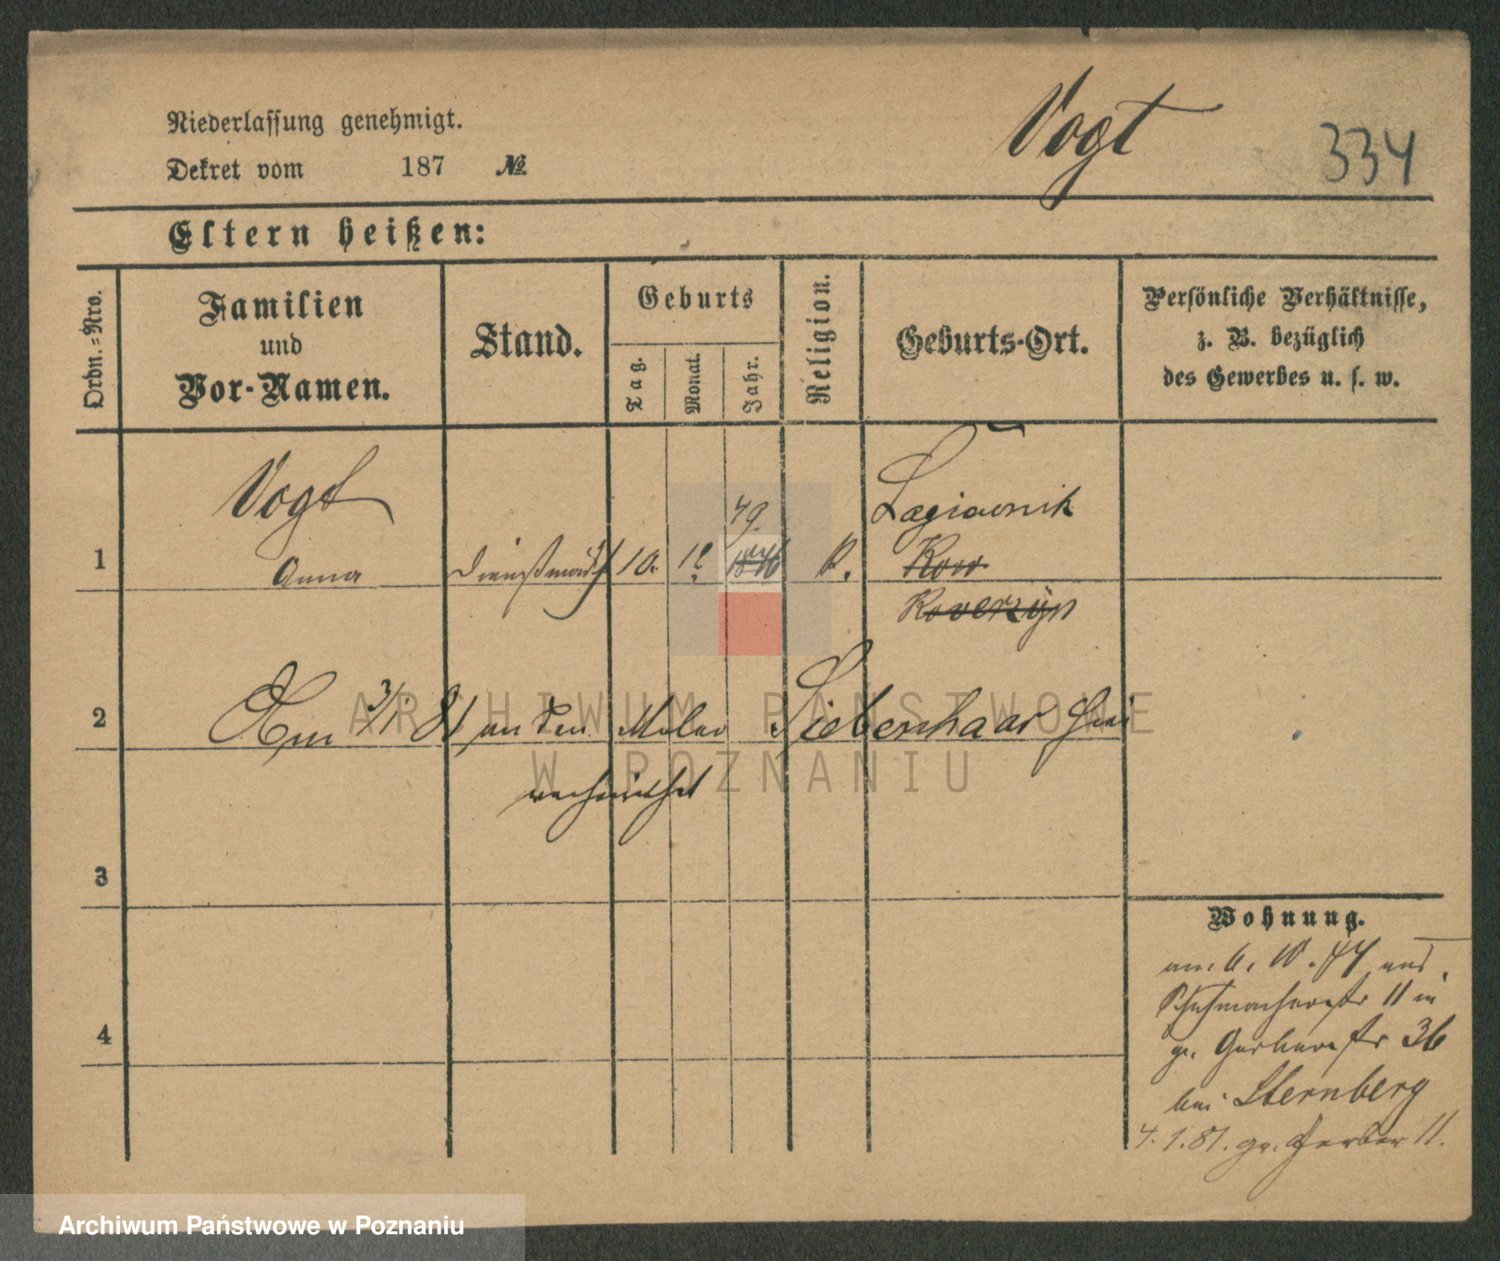 Niederlassung genehmigt.
Vogt
334
Dekret vom 187 №
Eltern heißen:
Ordn.-Nro.
Familien
und
Vor-Namen.
Stand.
Geburts
Tag.
Monat.
Jahr.
Religion.
Geburts-Ort.
Persönliche Verhältnisse,
z. B. bezüglich
des Gewerbes u. s. w.
Vogt
49.
Lagiewnik
1
Anna
10.
12.
1846
K.
Kow
Kowerzyn
2
Am 3/1 81 an den Maler Siebenhaar hier
verheirathet
3
4
Wohnung.
Schuhmacherstr 11 in
gr. Gerberstr 36
bei Sternberg
4.1.81. gr. Gerber 11.
ARCHIWUM PAŃSTWOWE
W POZNANIU
Archiwum Państwowe w Poznaniu